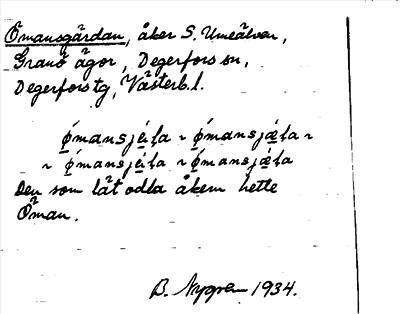 Ömansgärdan, åker S. Umeälven,
Granö ägor, Degerfors sn,
Degerfors tg, Västerb.l.
ǿ̱mansjɛ́ḷa ~ ǿmansjǽ̱ḷa ~
~ ǿ̱mansjɛ́ḷa ~ ǿ̱mansjǽḷa
Den som lät odla åkern hette
Öman.
B. Nygren 1934.